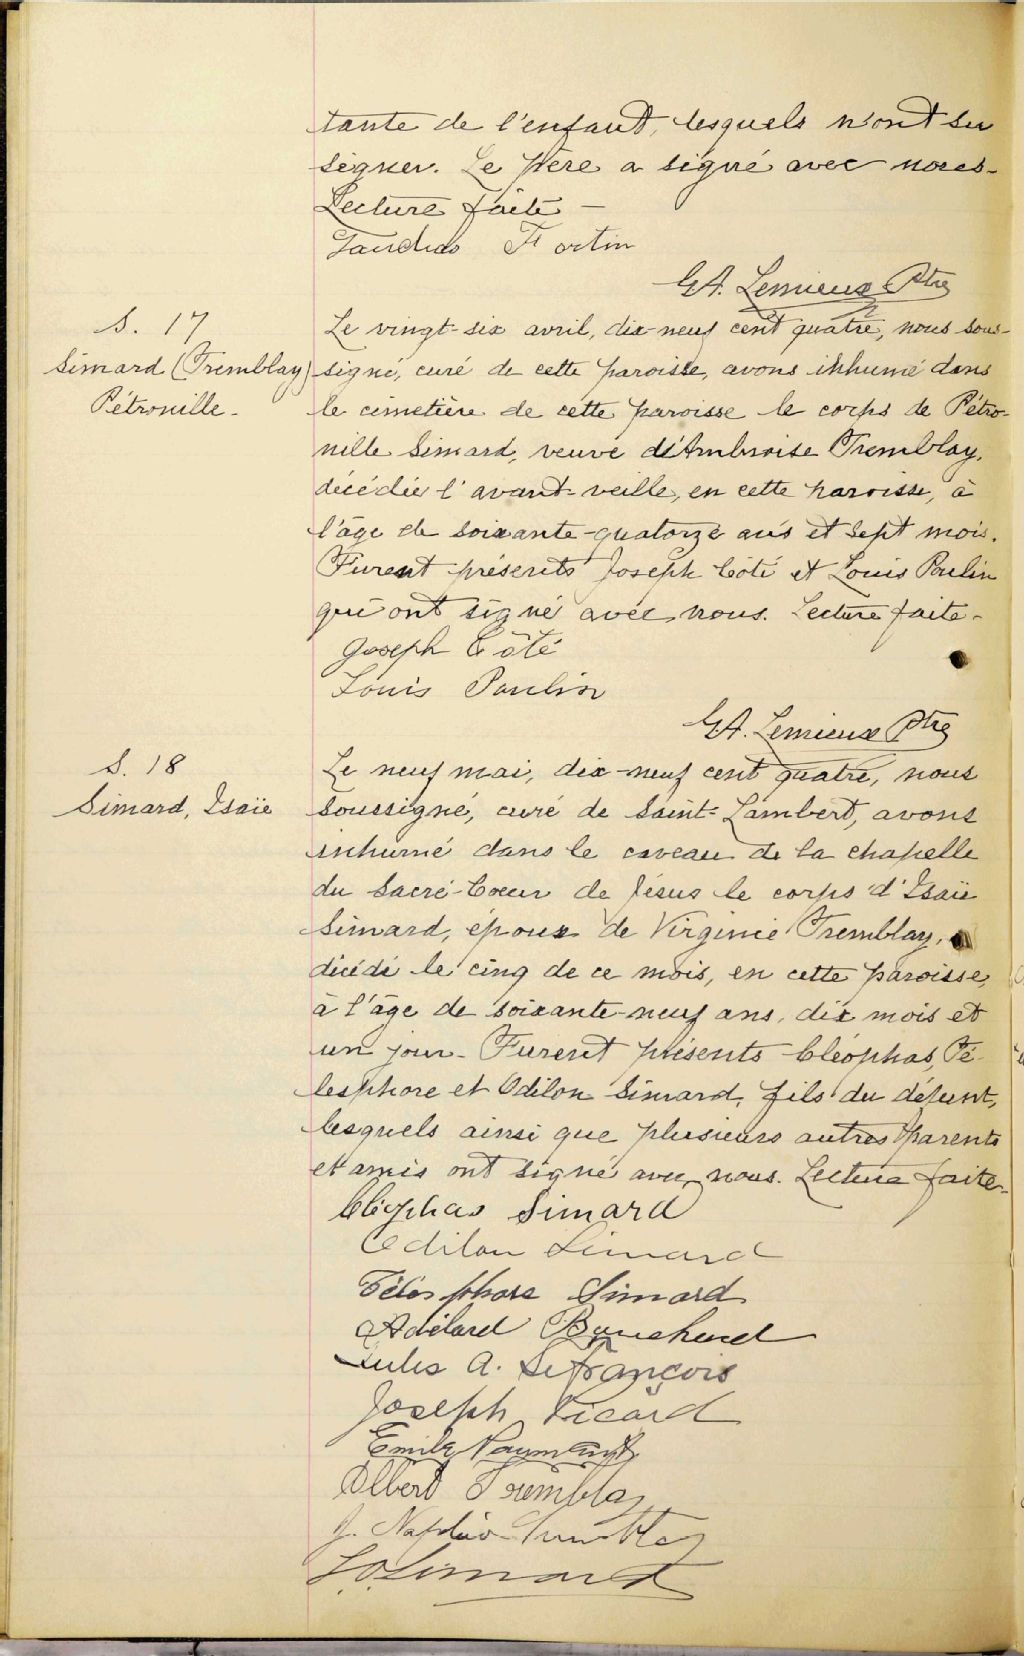 tante de l'enfant, lesquels n'ont su
signer. Le père a signé avec nous.
Lecture faite —
Fortin
G.A. Lemieux Ptre
S. 17
Simard (Tremblay)
Pétronille.
Le vingt-six avril, dix-neuf cent quatre, nous sous-
signé, curé de cette paroisse, avons inhumé dans
le cimetière de cette paroisse le corps de Pétro-
nille Simard, veuve d'Ambroise Tremblay,
décédée l'avant-veille, en cette paroisse, à
l'âge de soixante-quatorze ans et sept mois.
Furent présents Joseph Côté et Louis Poulin
qui ont signé avec nous. Lecture faite-
Joseph Côté
Louis Poulin
G.A. Lemieux Ptre
S. 18
Simard, Isaïe
Le neuf mai, dix-neuf cent quatre, nous
soussigné, curé de Saint-Lambert, avons
inhumé dans le caveau de la chapelle
du Sacré-Coeur de Jésus le corps d'Isaïe
Simard, époux de Virginie Tremblay,
décédé le cinq de ce mois, en cette paroisse,
à l'âge de soixante-neuf ans, dix mois et
un jour. Furent présents Cléophas, Té-
lesphore et Odilon Simard, fils du défunt,
lesquels ainsi que plusieurs autres parents
et amis ont signé avec nous. Lecture faite-
Cléophas Simard
Odilon Simard
Télesphore Simard
Adélard Bouchard
Jules A. Lefrançois
Joseph Picard
Emile
Albert Tremblay
J. Napoléon Tremblay
Simard